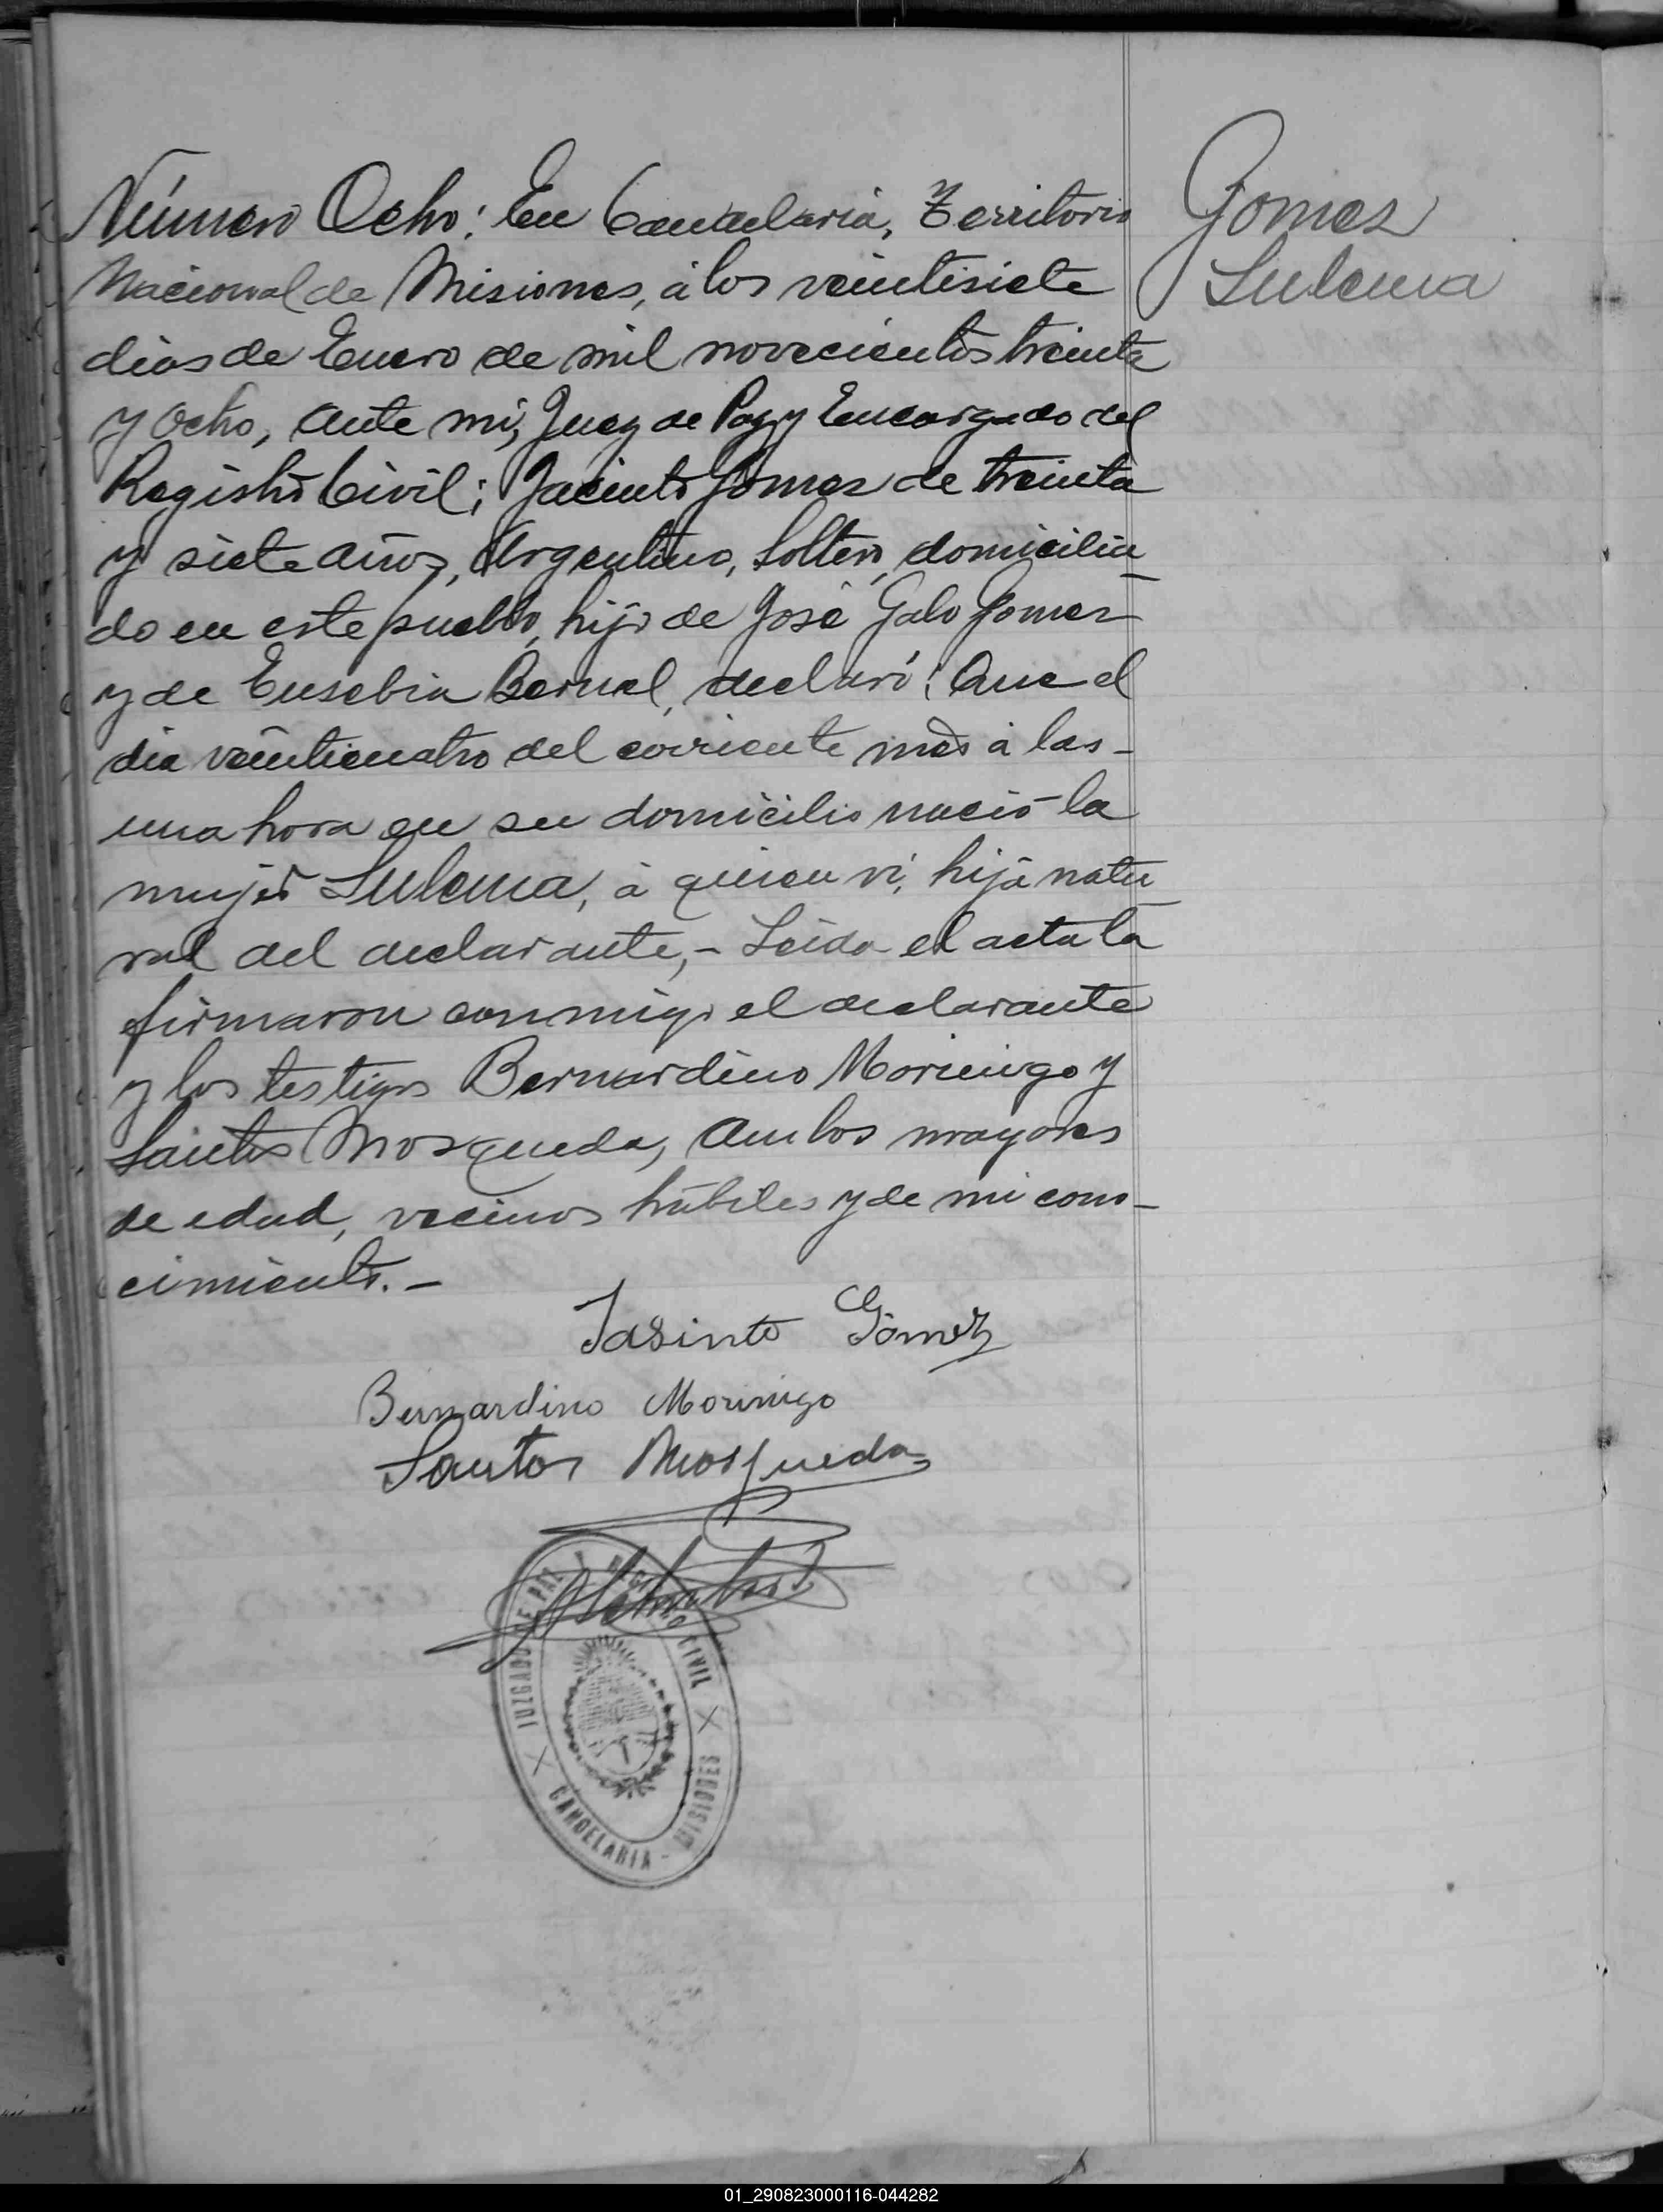 Número Ocho: En Candelaria, Territorio
Nacional de Misiones, á los veintisiete
dias de Enero de mil novecientos treinta
y Ocho, ante mi, Juez de Paz y Encargado del
Registro Civil; Jacinto Gomez de treinta
y siete años, Argentino, Soltero, domicilia
do en este pueblo, hijo de José Galo Gomez
y de Eusebia Bernal, declaró: Que el
dia veinticuatro del corriente mes á las-
una hora en su domicilio nació la
mujer Sulema, á quien vi, hija natu
ral del declarante,- Leida el acta la
firmaron conmigo el declarante
y los testigos Bernardino Morinigo y
Santos Mosqueda, Ambos mayores
de edad, vecinos hábiles y de mi cono-
cimiento.-
Gomez
Sulema
Jasinto Gomez
Bernardino Morinigo
Santos Mosqueda
JUZGADO DE PAZ Y REGISTRO CIVIL
CANDELARIA - MISIONES
01_290823000116-044282